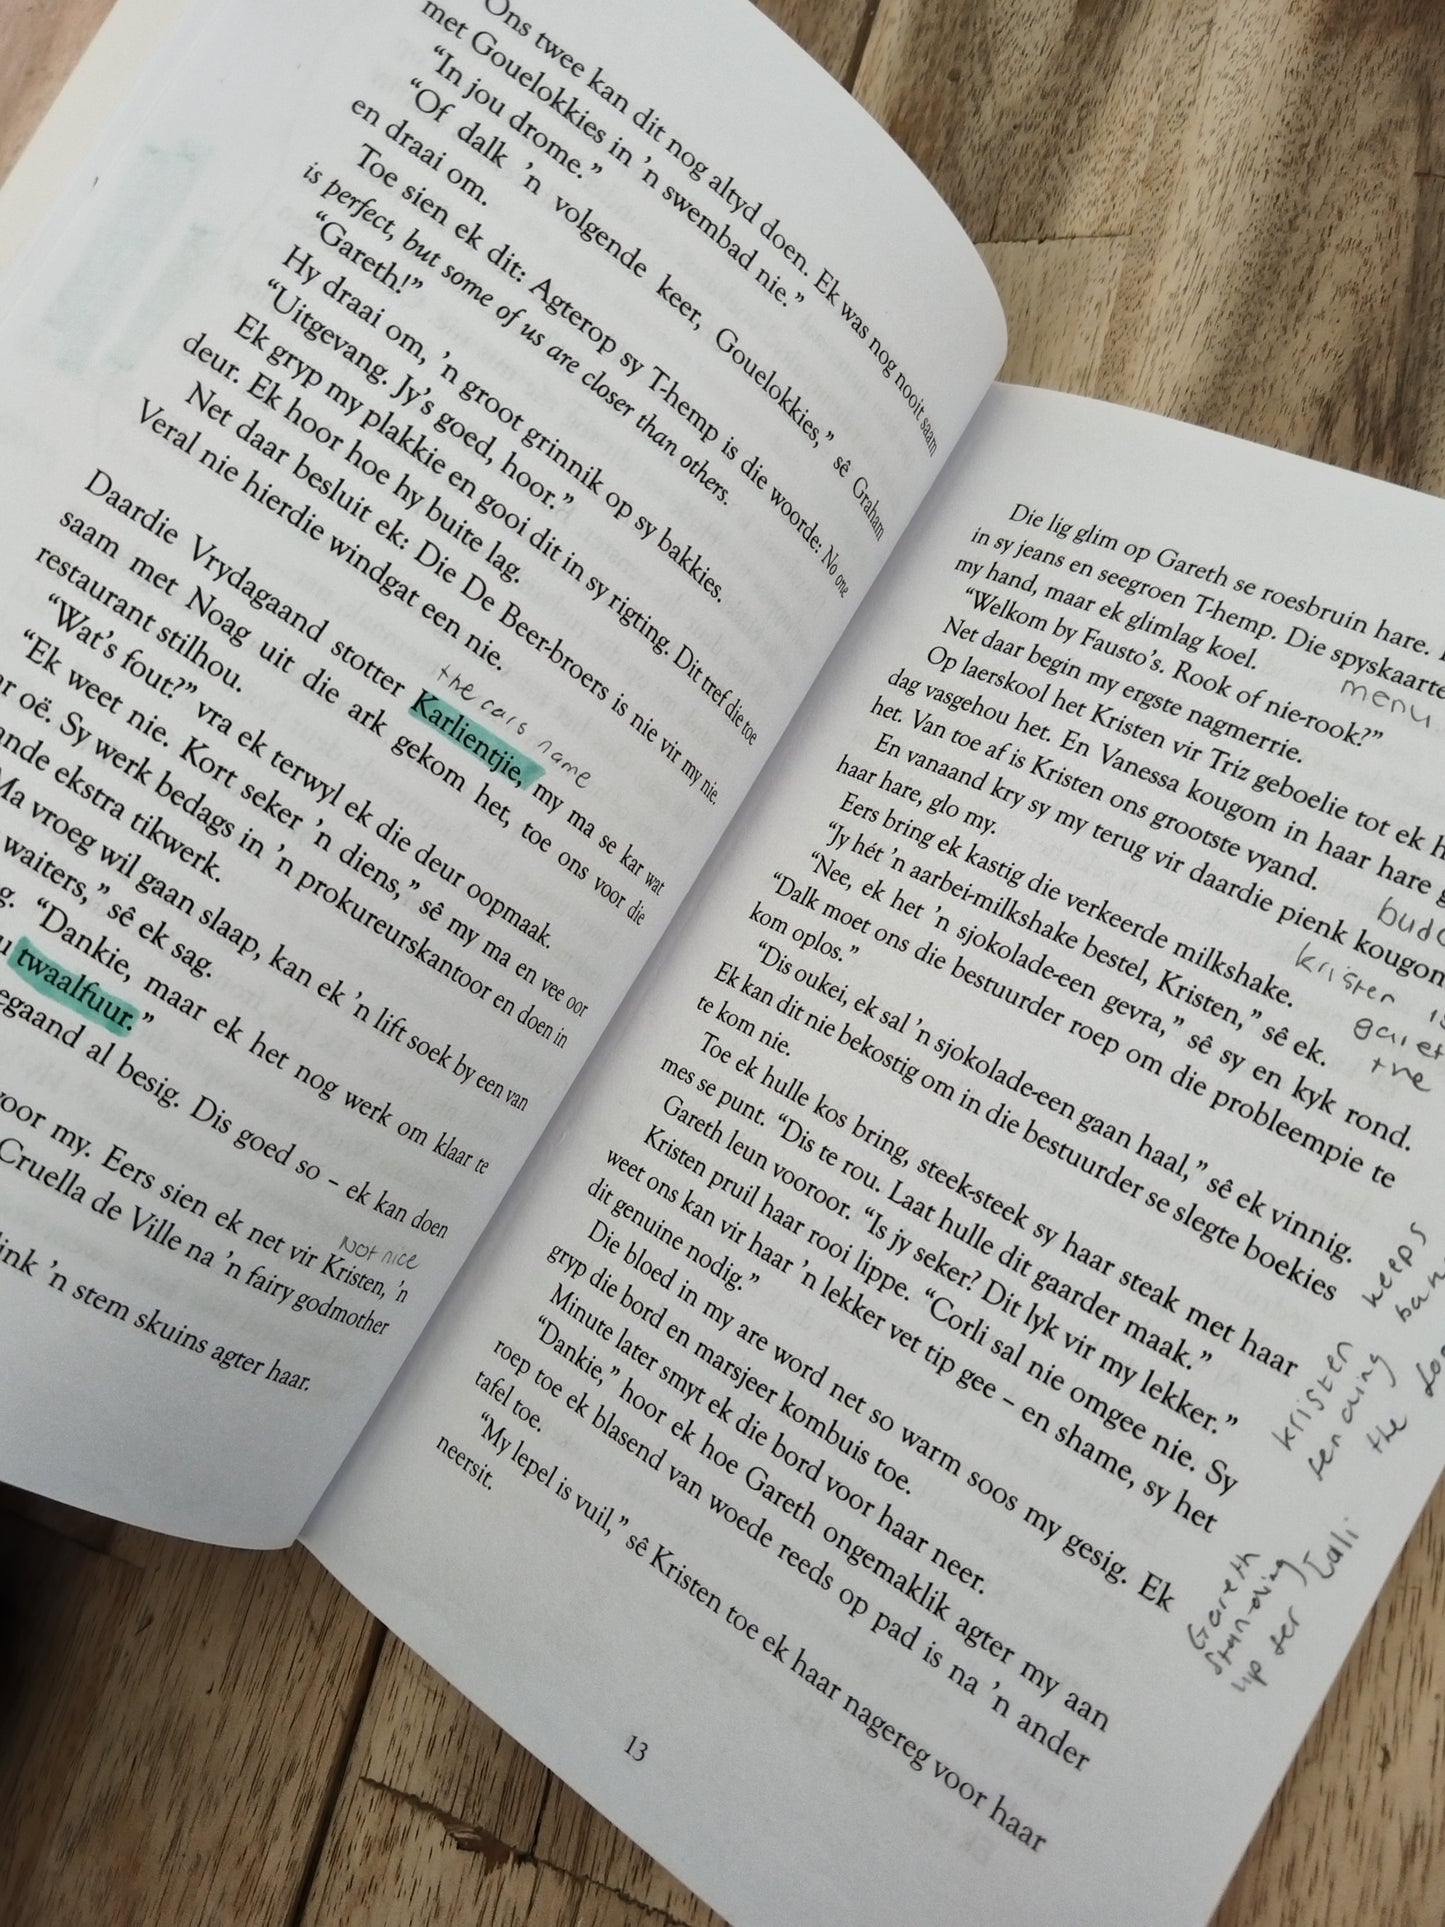 Ons twee kan dit nog altyd doen. Ek was nog nooit saam
met Gouelokkies in ’n swembad nie.”
“In jou drome.”
“Of dalk ’n volgende keer, Gouelokkies,” sê Graham
en draai om.
Toe sien ek dit: Agterop sy T-hemp is die woorde: No one
is perfect, but some of us are closer than others.
“Gareth!”
Hy draai om, ’n groot grinnik op sy bakkies.
“Uitgevang. Jy’s goed, hoor.”
Ek gryp my plakkie en gooi dit in sy rigting. Dit tref die toe
deur. Ek hoor hoe hy buite lag.
Net daar besluit ek: Die De Beer-broers is nie vir my nie.
Veral nie hierdie windgat een nie.
the cars name
Daardie Vrydagaand stotter Karlientjie, my ma se kar wat
saam met Noag uit die ark gekom het, toe ons voor die
restaurant stilhou.
“Wat’s fout?” vra ek terwyl ek die deur oopmaak.
“Ek weet nie. Kort seker ’n diens,” sê my ma en vee oor
oë. Sy werk bedags in ’n prokureurskantoor en doen in
ekstra tikwerk.
Ma vroeg wil gaan slaap, kan ek ’n lift soek by een van
waiters,” sê ek sag.
“Dankie, maar ek het nog werk om klaar te
twaalfuur.”
al besig. Dis goed so – ek kan doen
not nice
voor my. Eers sien ek net vir Kristen, ’n
Cruella de Ville na ’n fairy godmother
’n stem skuins agter haar.
Die lig glim op Gareth se roesbruin hare.
in sy jeans en seegroen T-hemp. Die spyskaarte
menu
my hand, maar ek glimlag koel.
“Welkom by Fausto’s. Rook of nie-rook?”
Net daar begin my ergste nagmerrie.
Op laerskool het Kristen vir Triz geboelie tot ek
dag vasgehou het. En Vanessa kougom in haar hare
het. Van toe af is Kristen ons grootste vyand.
En vanaand kry sy my terug vir daardie pienk kougom
haar hare, glo my.
Eers bring ek kastig die verkeerde milkshake.
kristen
“Jy hét ’n aarbei-milkshake bestel, Kristen,” sê ek.
“Nee, ek het ’n sjokolade-een gevra,” sê sy en kyk rond.
the
“Dalk moet ons die bestuurder roep om die probleempie te
kom oplos.”
“Dis oukei, ek sal ’n sjokolade-een gaan haal,” sê ek vinnig.
Ek kan dit nie bekostig om in die bestuurder se slegte boekies
te kom nie.
keeps
Toe ek hulle kos bring, steek-steek sy haar steak met haar
mes se punt. “Dis te rou. Laat hulle dit gaarder maak.”
kristen
the
Gareth leun vooroor. “Is jy seker? Dit lyk vir my lekker.”
Kristen pruil haar rooi lippe. “Corli sal nie omgee nie. Sy
weet ons kan vir haar ’n lekker vet tip gee – en shame, sy het
dit genuine nodig.”
Die bloed in my are word net so warm soos my gesig. Ek
gryp die bord en marsjeer kombuis toe.
Gareth
up
Minute later smyt ek die bord voor haar neer.
“Dankie,” hoor ek hoe Gareth ongemaklik agter my aan
roep toe ek blasend van woede reeds op pad is na ’n ander
tafel toe.
“My lepel is vuil,” sê Kristen toe ek haar nagereg voor haar
neersit.
13